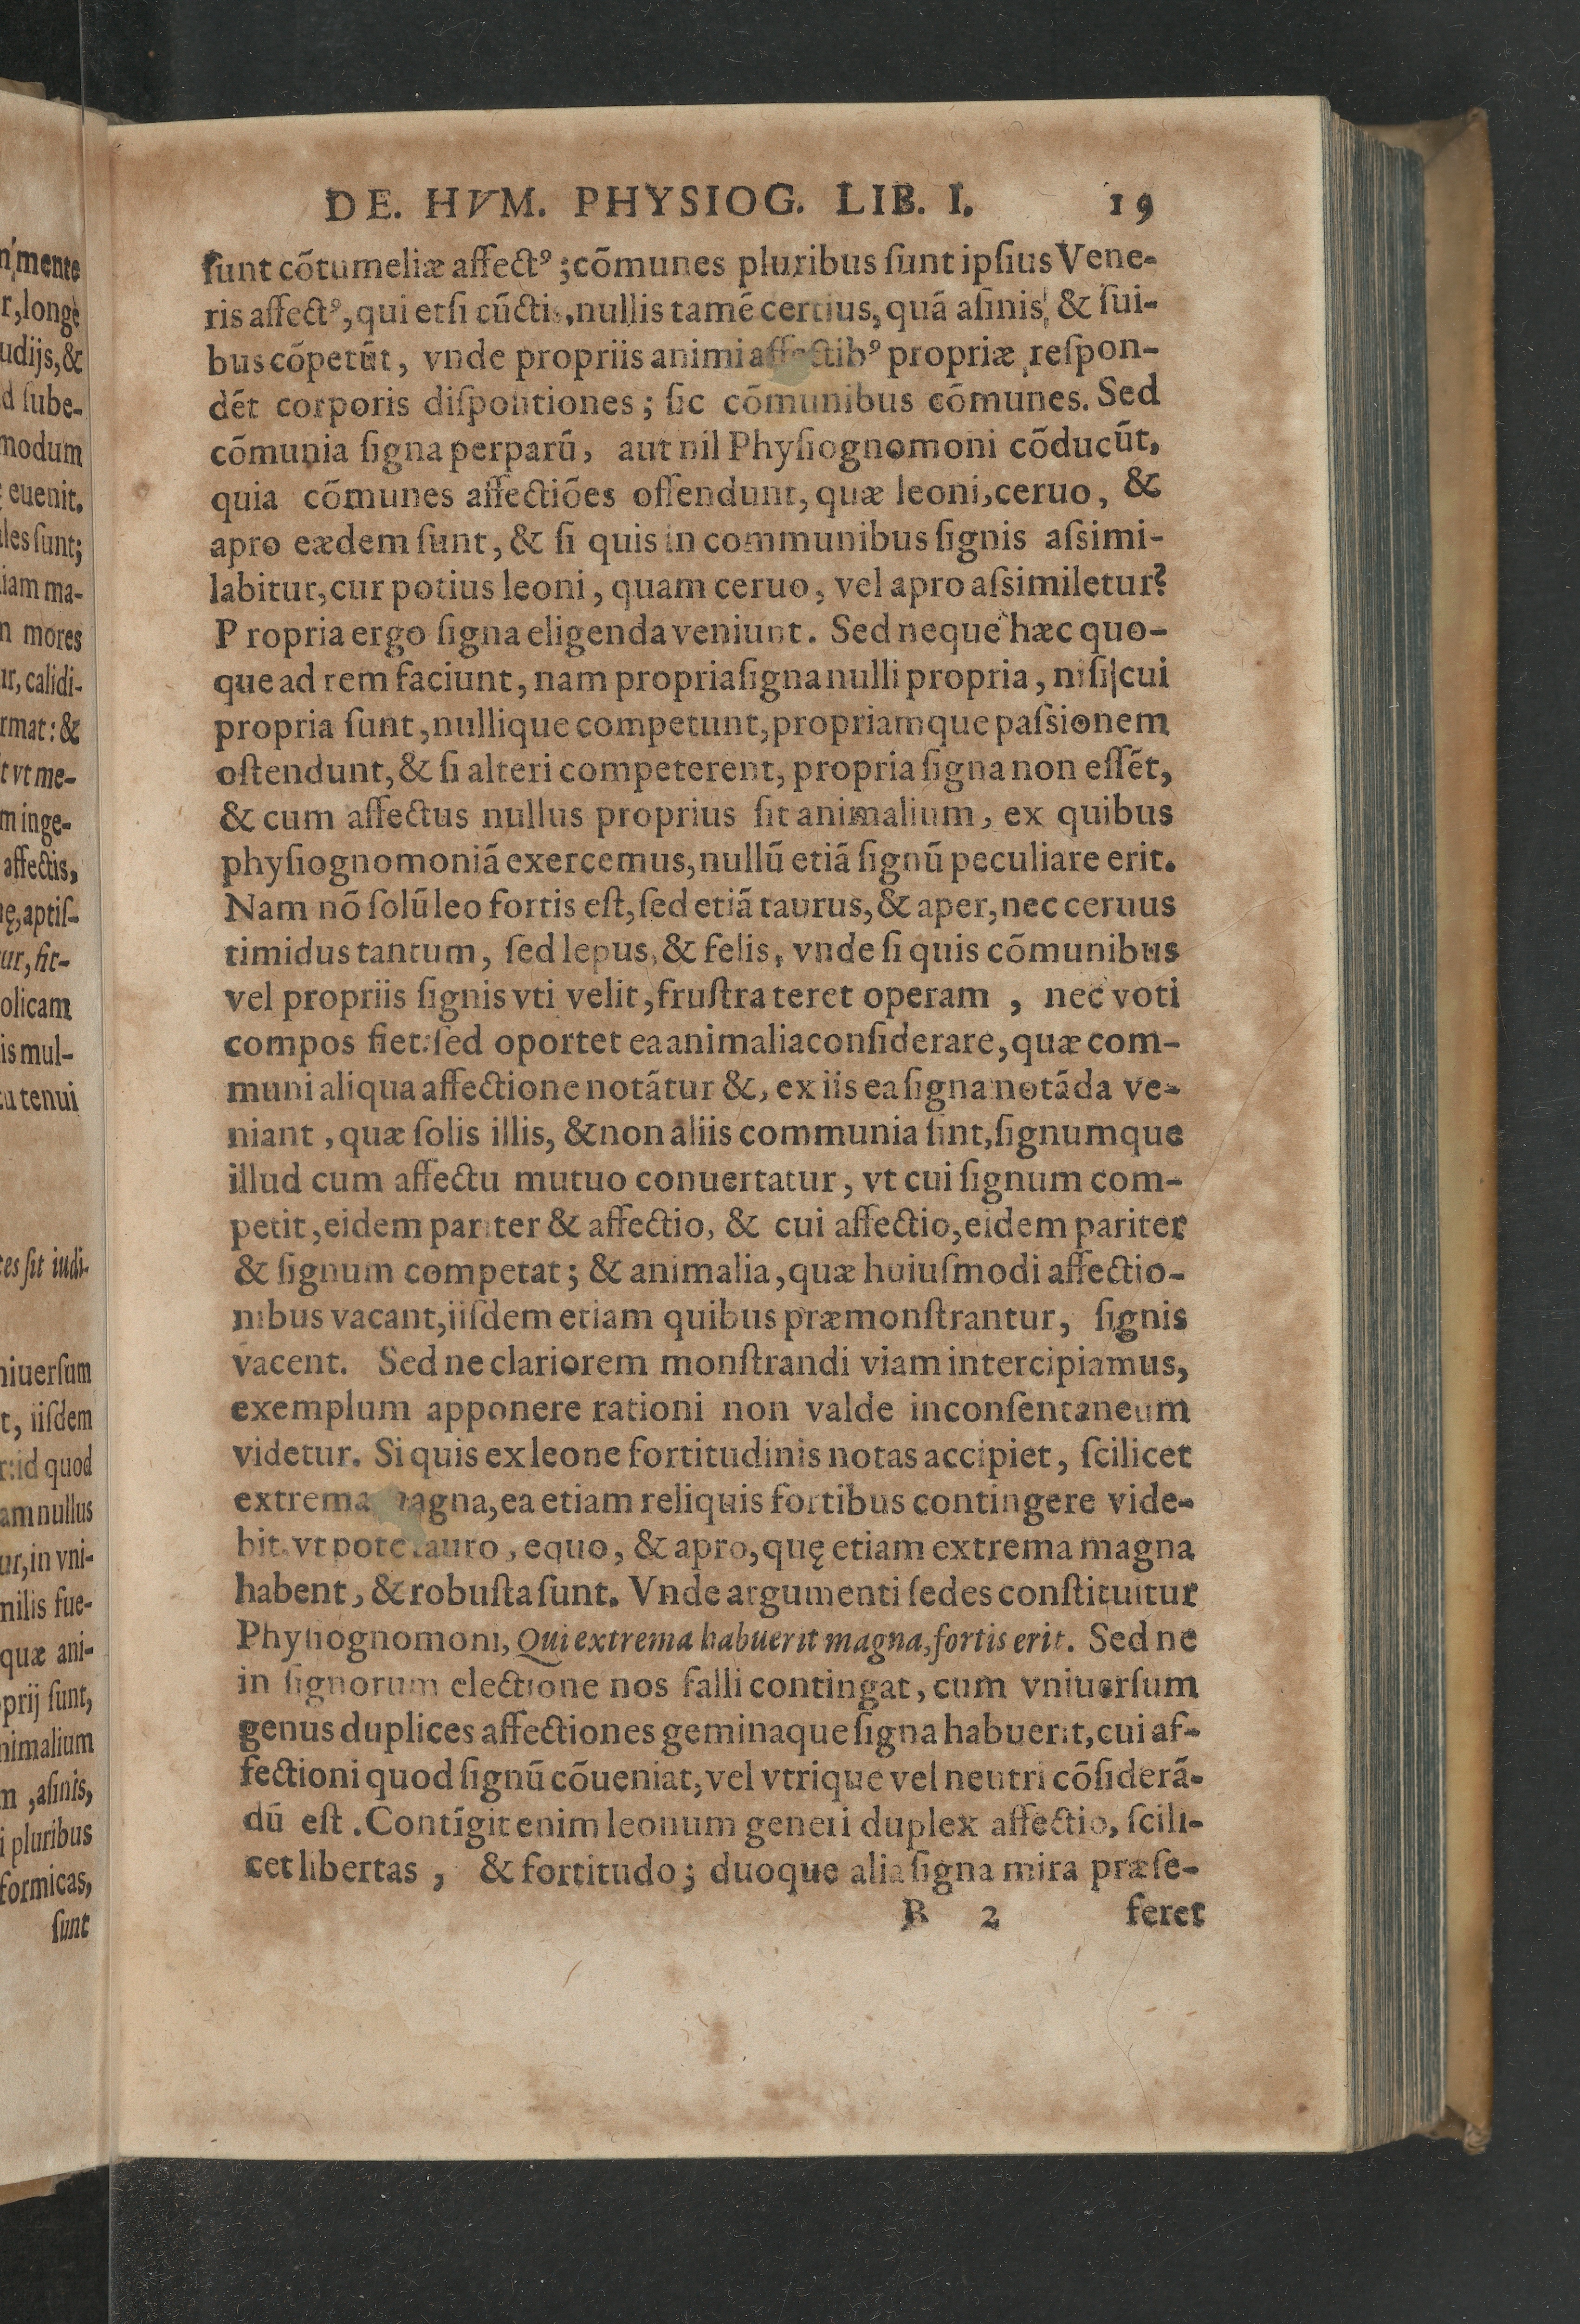 DE. HVM. PHYSIOG. LIB. I. 19
ſunt cõtumeliæ affectꝰ; cõmunes pluribus ſunt ipſius Vene-
ris affectꝰ, qui etſi cũctis, nullis tamẽ certius, quã aſinis, & ſui-
bus cõpetũt, vnde propriis animi affectibꝰ propriæ reſpon-
dẽt corporis diſpoſitiones; ſic cõmunibus cõmunes. Sed
cõmunia ſigna perparũ, aut nil Phyſiognomoni cõducũt,
quia cõmunes affectiões oſſendunt, quæ leoni, ceruo, &
apro eædem ſunt, & ſi quis in communibus ſignis aſsimi-
labitur, cur potius leoni, quam ceruo, vel apro aſsimiletur?
P ropria ergo ſigna eligenda veniunt. Sed neque hæc quo-
que ad rem faciunt, nam propria ſigna nulli propria, niſi cui
propria ſunt, nullique competunt, propriamque paſsionem
oſtendunt, & ſi alteri competerent, propria ſigna non eſſẽt,
& cum affectus nullus proprius ſit animalium, ex quibus
phyſiognomoniã exercemus, nullũ etiã ſignũ peculiare erit.
Nam nõ ſolũ leo fortis eſt, ſed etiã taurus, & aper, nec ceruus
timidus tantum, ſed lepus, & felis, vnde ſi quis cõmunibus
vel propriis ſignis vti velit, fruſtra teret operam, nec voti
compos fiet: ſed oportet ea animalia conſiderare, quæ com-
muni aliqua affectione notãtur &, ex iis ea ſigna notãda ve-
niant, quæ ſolis illis, & non aliis communia ſint, ſignumque
illud cum affectu mutuo conuertatur, vt cui ſignum com-
petit, eidem pariter & affectio, & cui affectio, eidem pariter
& ſignum competat; & animalia, quæ huiuſmodi affectio-
nibus vacant, iiſdem etiam quibus præmonſtrantur, ſignis
vacent. Sed ne clariorem monſtrandi viam intercipiamus,
exemplum apponere rationi non valde inconſentaneum
videtur. Si quis ex leone fortitudinis notas accipiet, ſcilicet
extrema magna, ea etiam reliquis fortibus contingere vide-
bit. vt pote tauro, equo, & apro, quę etiam extrema magna
habent, & robuſta ſunt. Vnde argumenti ſedes conſtituitur
Phyſiognomoni, Qui extrema habuerit magna, fortis erit. Sed ne
in ſignorum electione nos falli contingat, cum vniuerſum
genus duplices affectiones geminaque ſigna habuerit, cui af-
fectioni quod ſignũ cõueniat, vel vtrique vel neutri cõſiderã-
dũ eſt. Contĩgit enim leonum generi duplex affectio, ſcili-
cet libertas, & fortitudo; duoque alia ſigna mira præſe-
B 2 feret